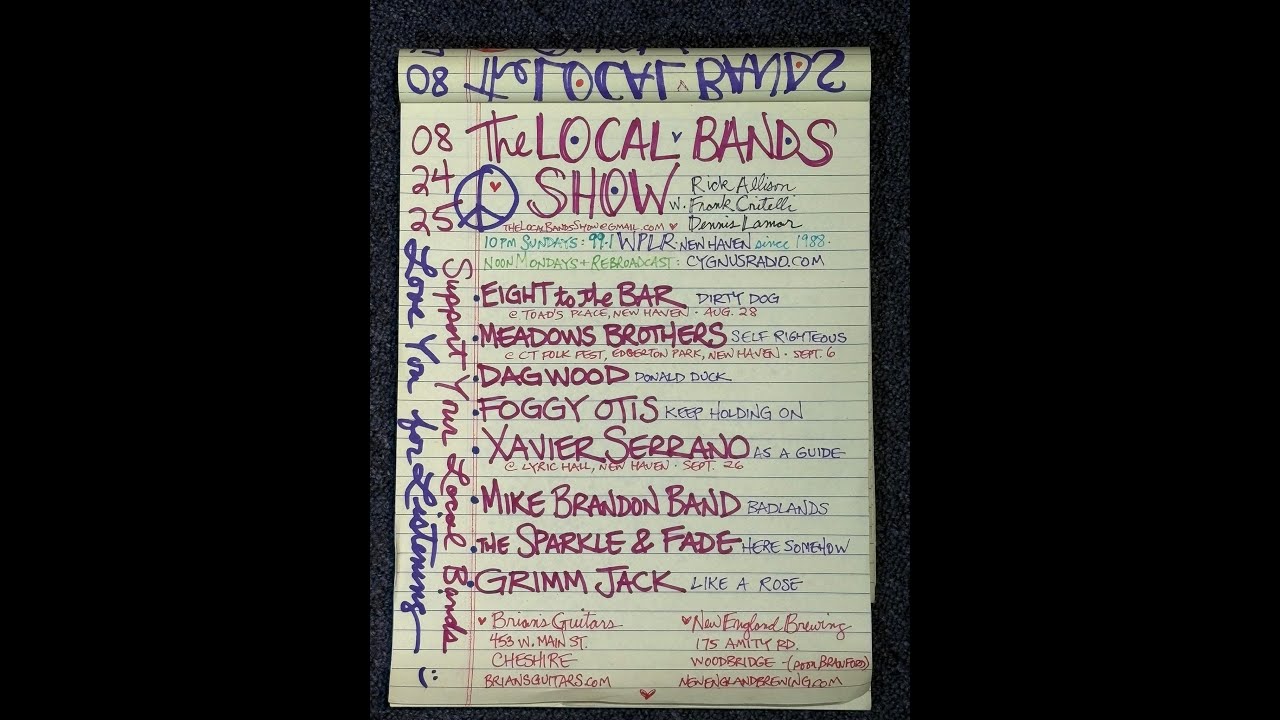 08 The LOCAL BANDS
08 The LOCAL BANDS
24 SHOW w. Rick Allison
Frank Critelli
25 Dennis Lamar
THELOCALBANDSSHOW@GMAIL.COM
10PM SUNDAYS: 99.1 WPLR • NEW HAVEN since 1988.
NOON MONDAYS + REBROADCAST: CYGNUSRADIO.COM
• EIGHT to the BAR DIRTY DOG
@ TOAD'S PLACE, NEW HAVEN • AUG. 28
• MEADOWS BROTHERS SELF RIGHTEOUS
@ CT FOLK FEST, EDGERTON PARK, NEW HAVEN • SEPT. 6
• DAGWOOD DONALD DUCK
• FOGGY OTIS KEEP HOLDING ON
• XAVIER SERRANO AS A GUIDE
@ LYRIC HALL, NEW HAVEN • SEPT. 26
• MIKE BRANDON BAND BADLANDS
• THE SPARKLE & FADE HERE SOMEHOW
• GRIMM JACK LIKE A ROSE
Brian's Guitars
453 W. MAIN ST.
CHESHIRE
BRIANSGUITARS.COM
New England Brewing
175 AMITY RD.
WOODBRIDGE - (POOR BRANFORD)
NEWENGLANDBREWING.COM
Support Your Local Bands
Love You for Listening